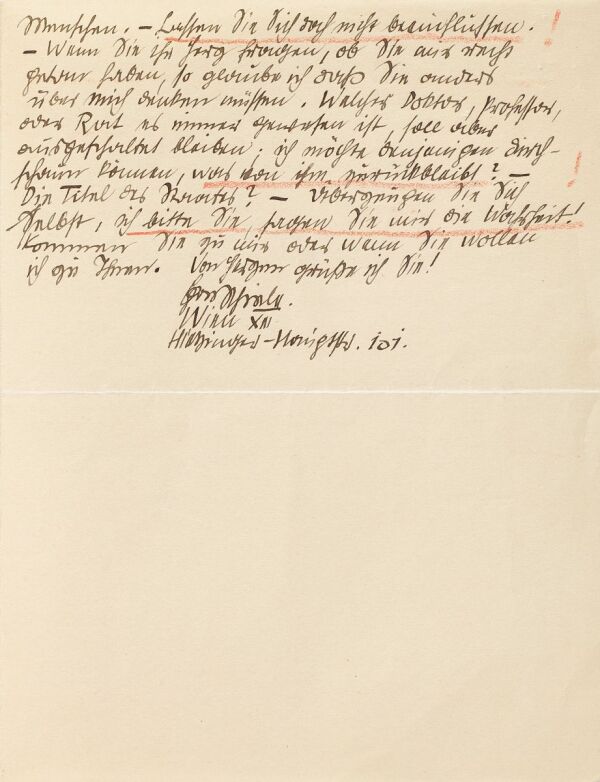 Menschen. – Lassen Sie Sich doch nicht beeinflussen. !
– Wenn Sie Ihr Herz fragen, ob Sie mir recht
getan haben, so glaube ich daß Sie anders
über mich denken müssen. Welcher Doktor, Professor,
oder Rat es immer gewesen ist, soll aber
ausgeschaltet bleiben; ich möchte denjenigen durch-
schauen können, was von ihm zurückbleibt? – !
Die Titel des Staates? – Überzeugen Sie Sich
Selbst, ich bitte Sie, sagen Sie mir die Wahrheit!
Kommen Sie zu mir oder wenn Sie wollen
ich zu Ihnen. Von Herzen grüße ich Sie!
Egon Schiele.
Wien XIII
Hietzinger-Hauptstr. 101.